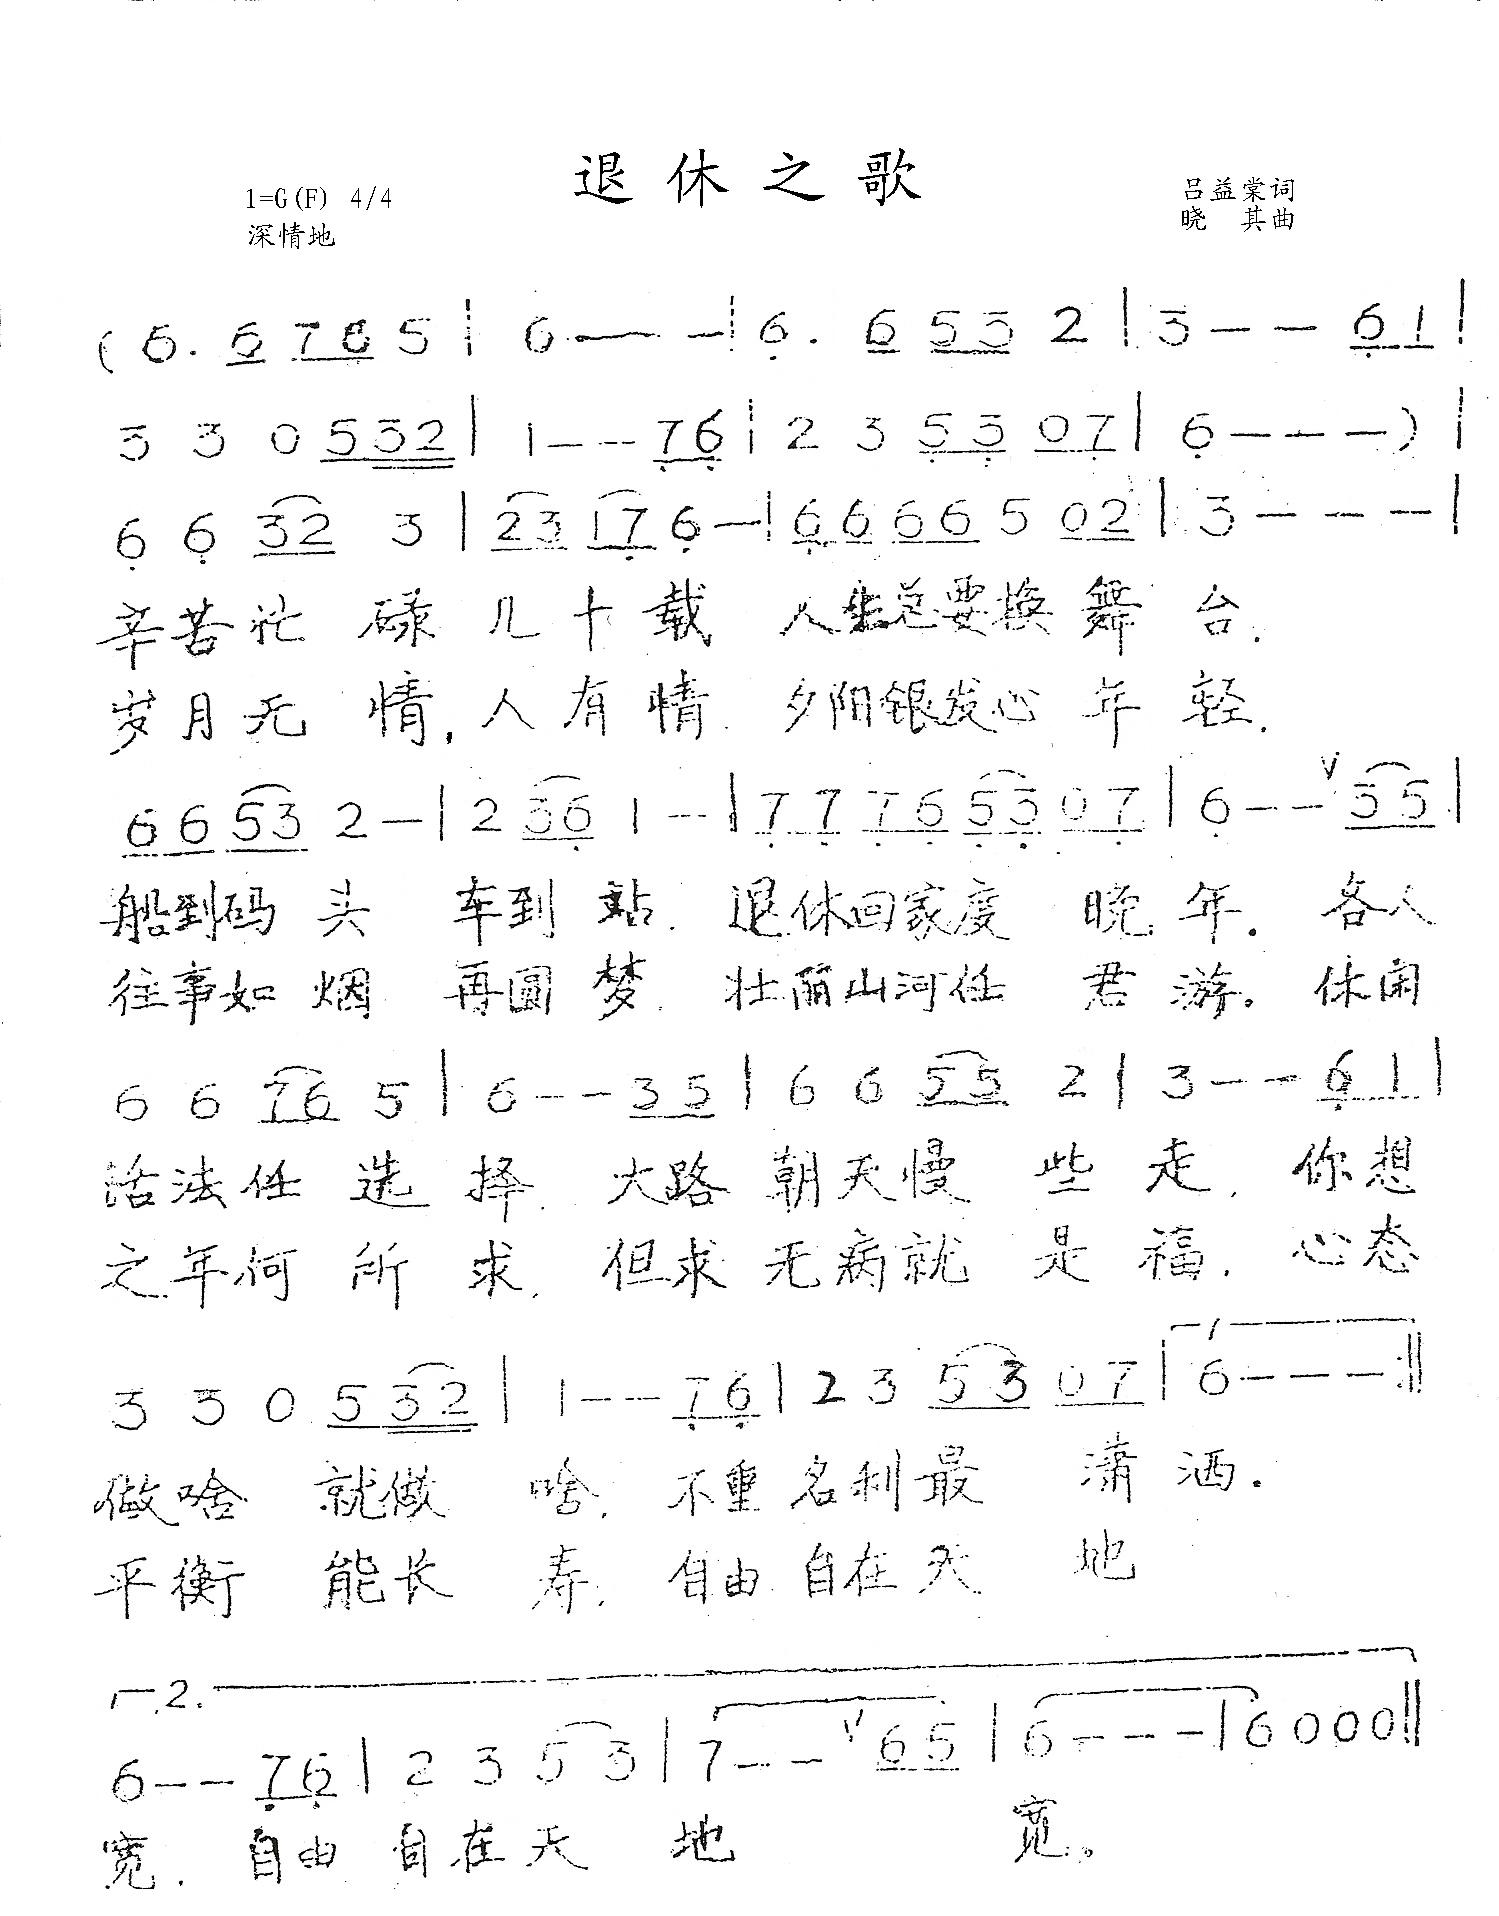 退休之歌
1=G(F) 4/4
吕益棠词
深情地
晓 其曲
(6. 6 7 6 5 | 6 — — — | 6. 6 5 3 2 | 3 — — 6 1 |
3 3 0 5 3 2 | 1 — — 7 6 | 2 3 5 3 0 7 | 6 — — — ) |
6 6 3 2 3 | 2 3 1 7 6 — | 6 6 6 6 5 0 2 | 3 — — — |
辛苦忙 碌 几 十 载 人生总要换 舞 台.
岁月无 情, 人 有 情. 夕阳银发心 年 轻.
6 6 5 3 2 — | 2 3 6 1 — — | 7 7 7 6 5 3 0 7 | 6 — — V 3 5 |
船到码 头 车到 站. 退休回家度 晚 年. 各人
往事如 烟 再圆 梦. 壮丽山河任 君 游. 休闲
6 6 7 6 5 | 6 — — 3 5 | 6 6 5 5 2 | 3 — — 6 1 |
活法任 选 择. 大路 朝天慢 些 走. 你想
之年何 所 求. 但求 无病就 是 福. 心态
1
3 3 0 5 3 2 | 1 — — 7 6 | 2 3 5 3 0 7 | 6 — — — :||
做啥 就做 啥. 不重 名利最 潇 洒.
平衡 能长 寿. 自由 自在天 地
2.
6 — — 7 6 | 2 3 5 3 | 7 — — V 6 5 | 6 — — — | 6 0 0 0 ||
宽. 自由 自在天 地 宽。